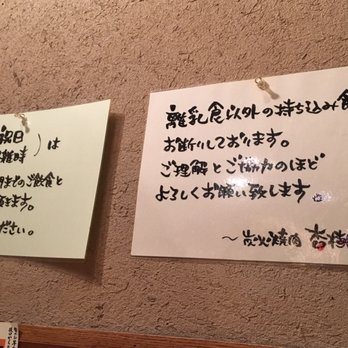 祝日
混雑時）は
間までのご飲食と
きます。
ださい。
離乳食以外の持ち込み
お断りしております。
ご理解とご協力のほど
よろしくお願い致します
〜炭火焼肉 杏樹